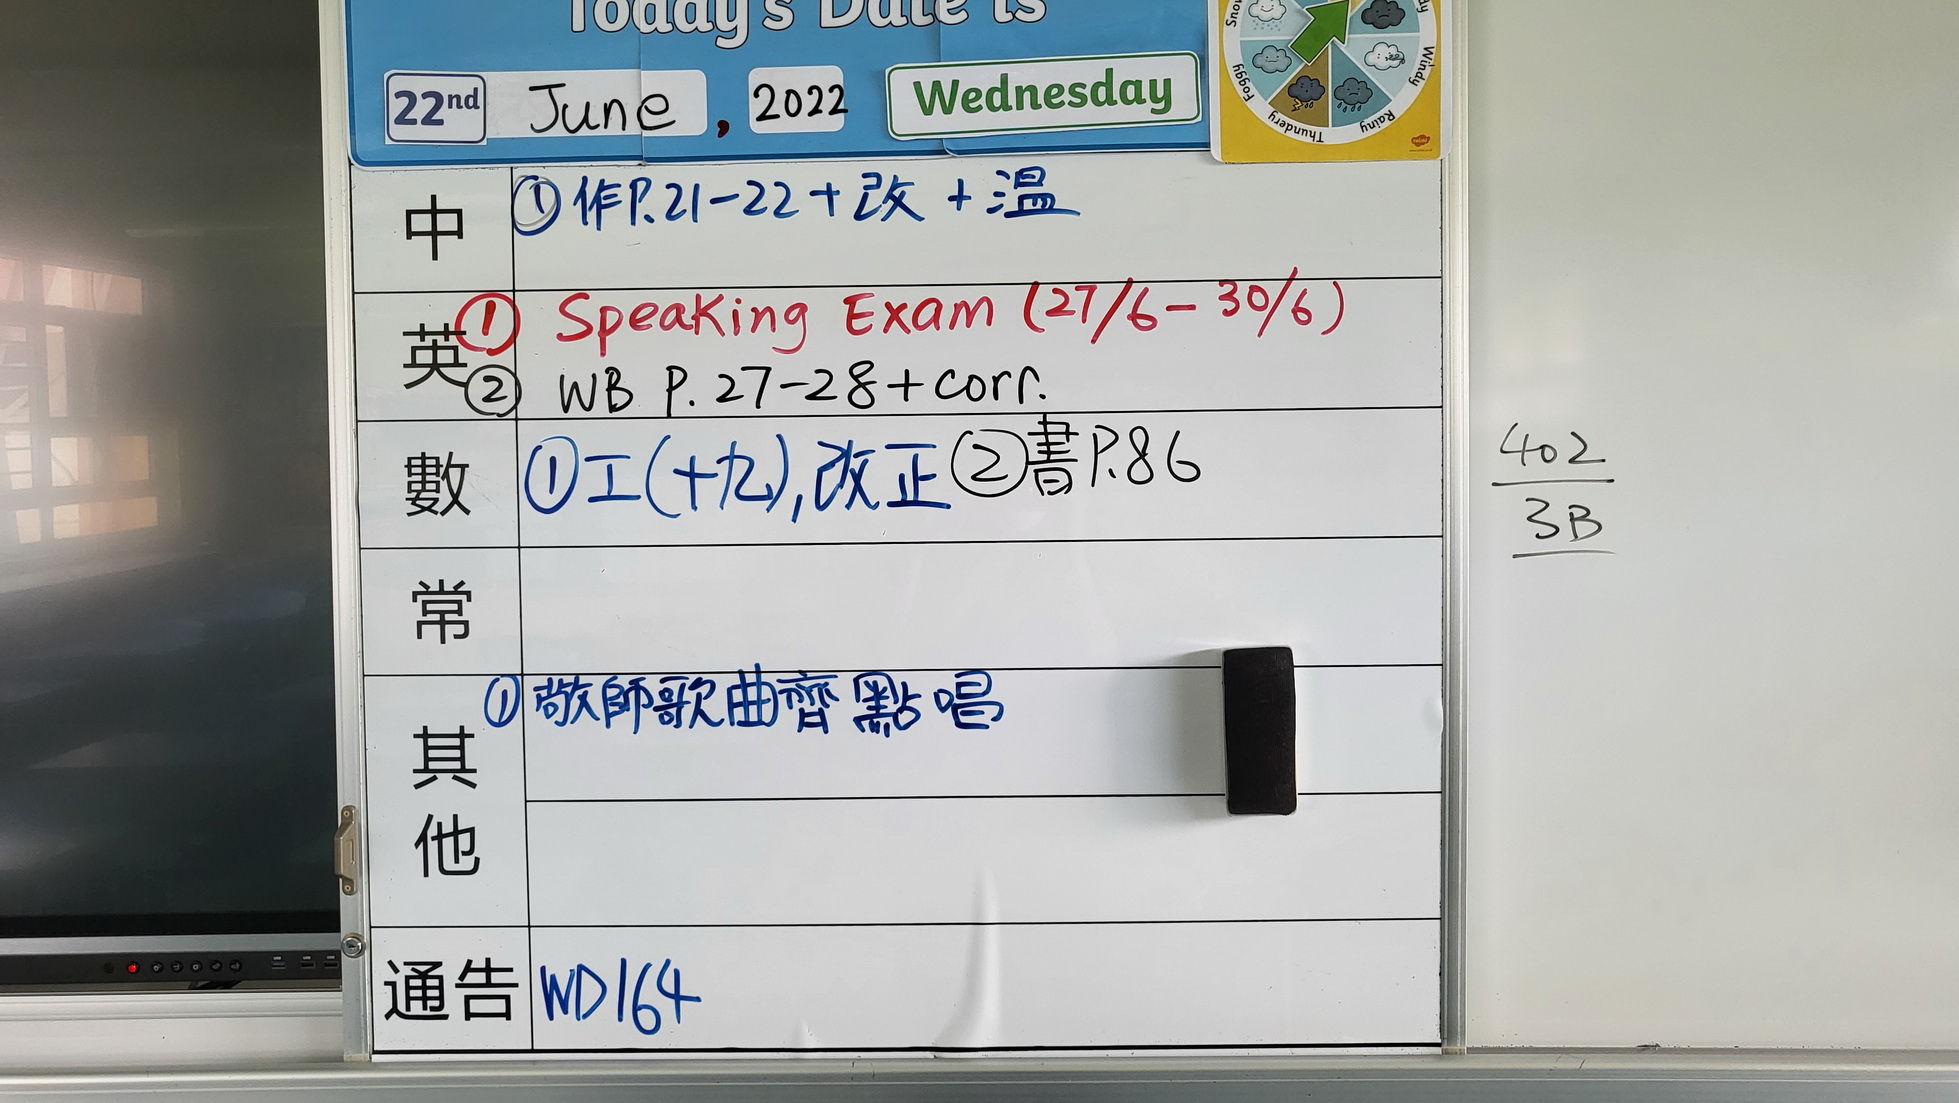 Today's Date is
22nd June, 2022 Wednesday
Foggy
Thundery
Rainy
Windy
中 ①作P.21-22+改+溫
英 ① Speaking Exam (27/6-30/6)
② WB P. 27-28+corr.
數 ①工(十九),改正②書P.86
常
其他 ①敬師歌曲齊點唱
通告 WD164
402
3B